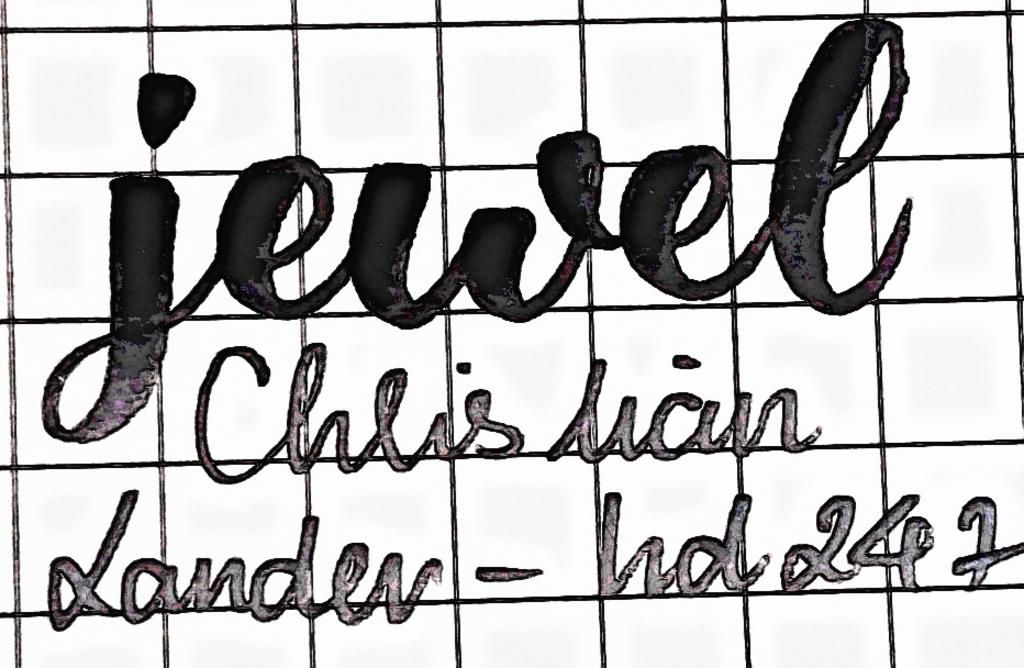 jewel
Christian
Lander - hd 247